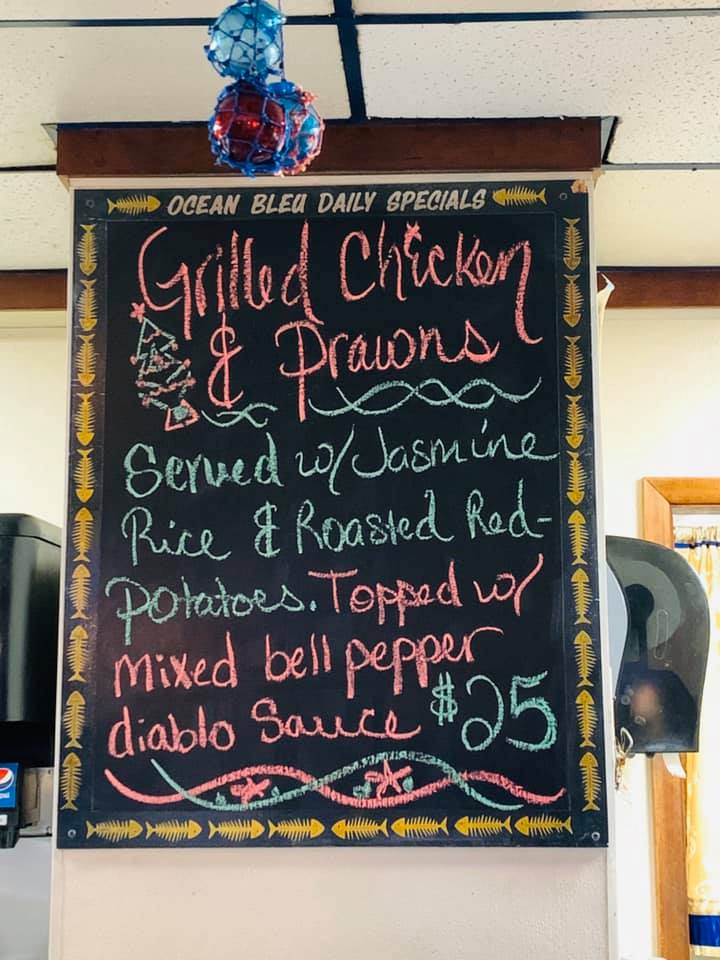 OCEAN BLEU DAILY SPECIALS
Grilled Chicken
& Prawns
Served w/ Jasmine
Rice & Roasted Red-
Potatoes. Topped w/
Mixed bell pepper
diablo Sauce $25